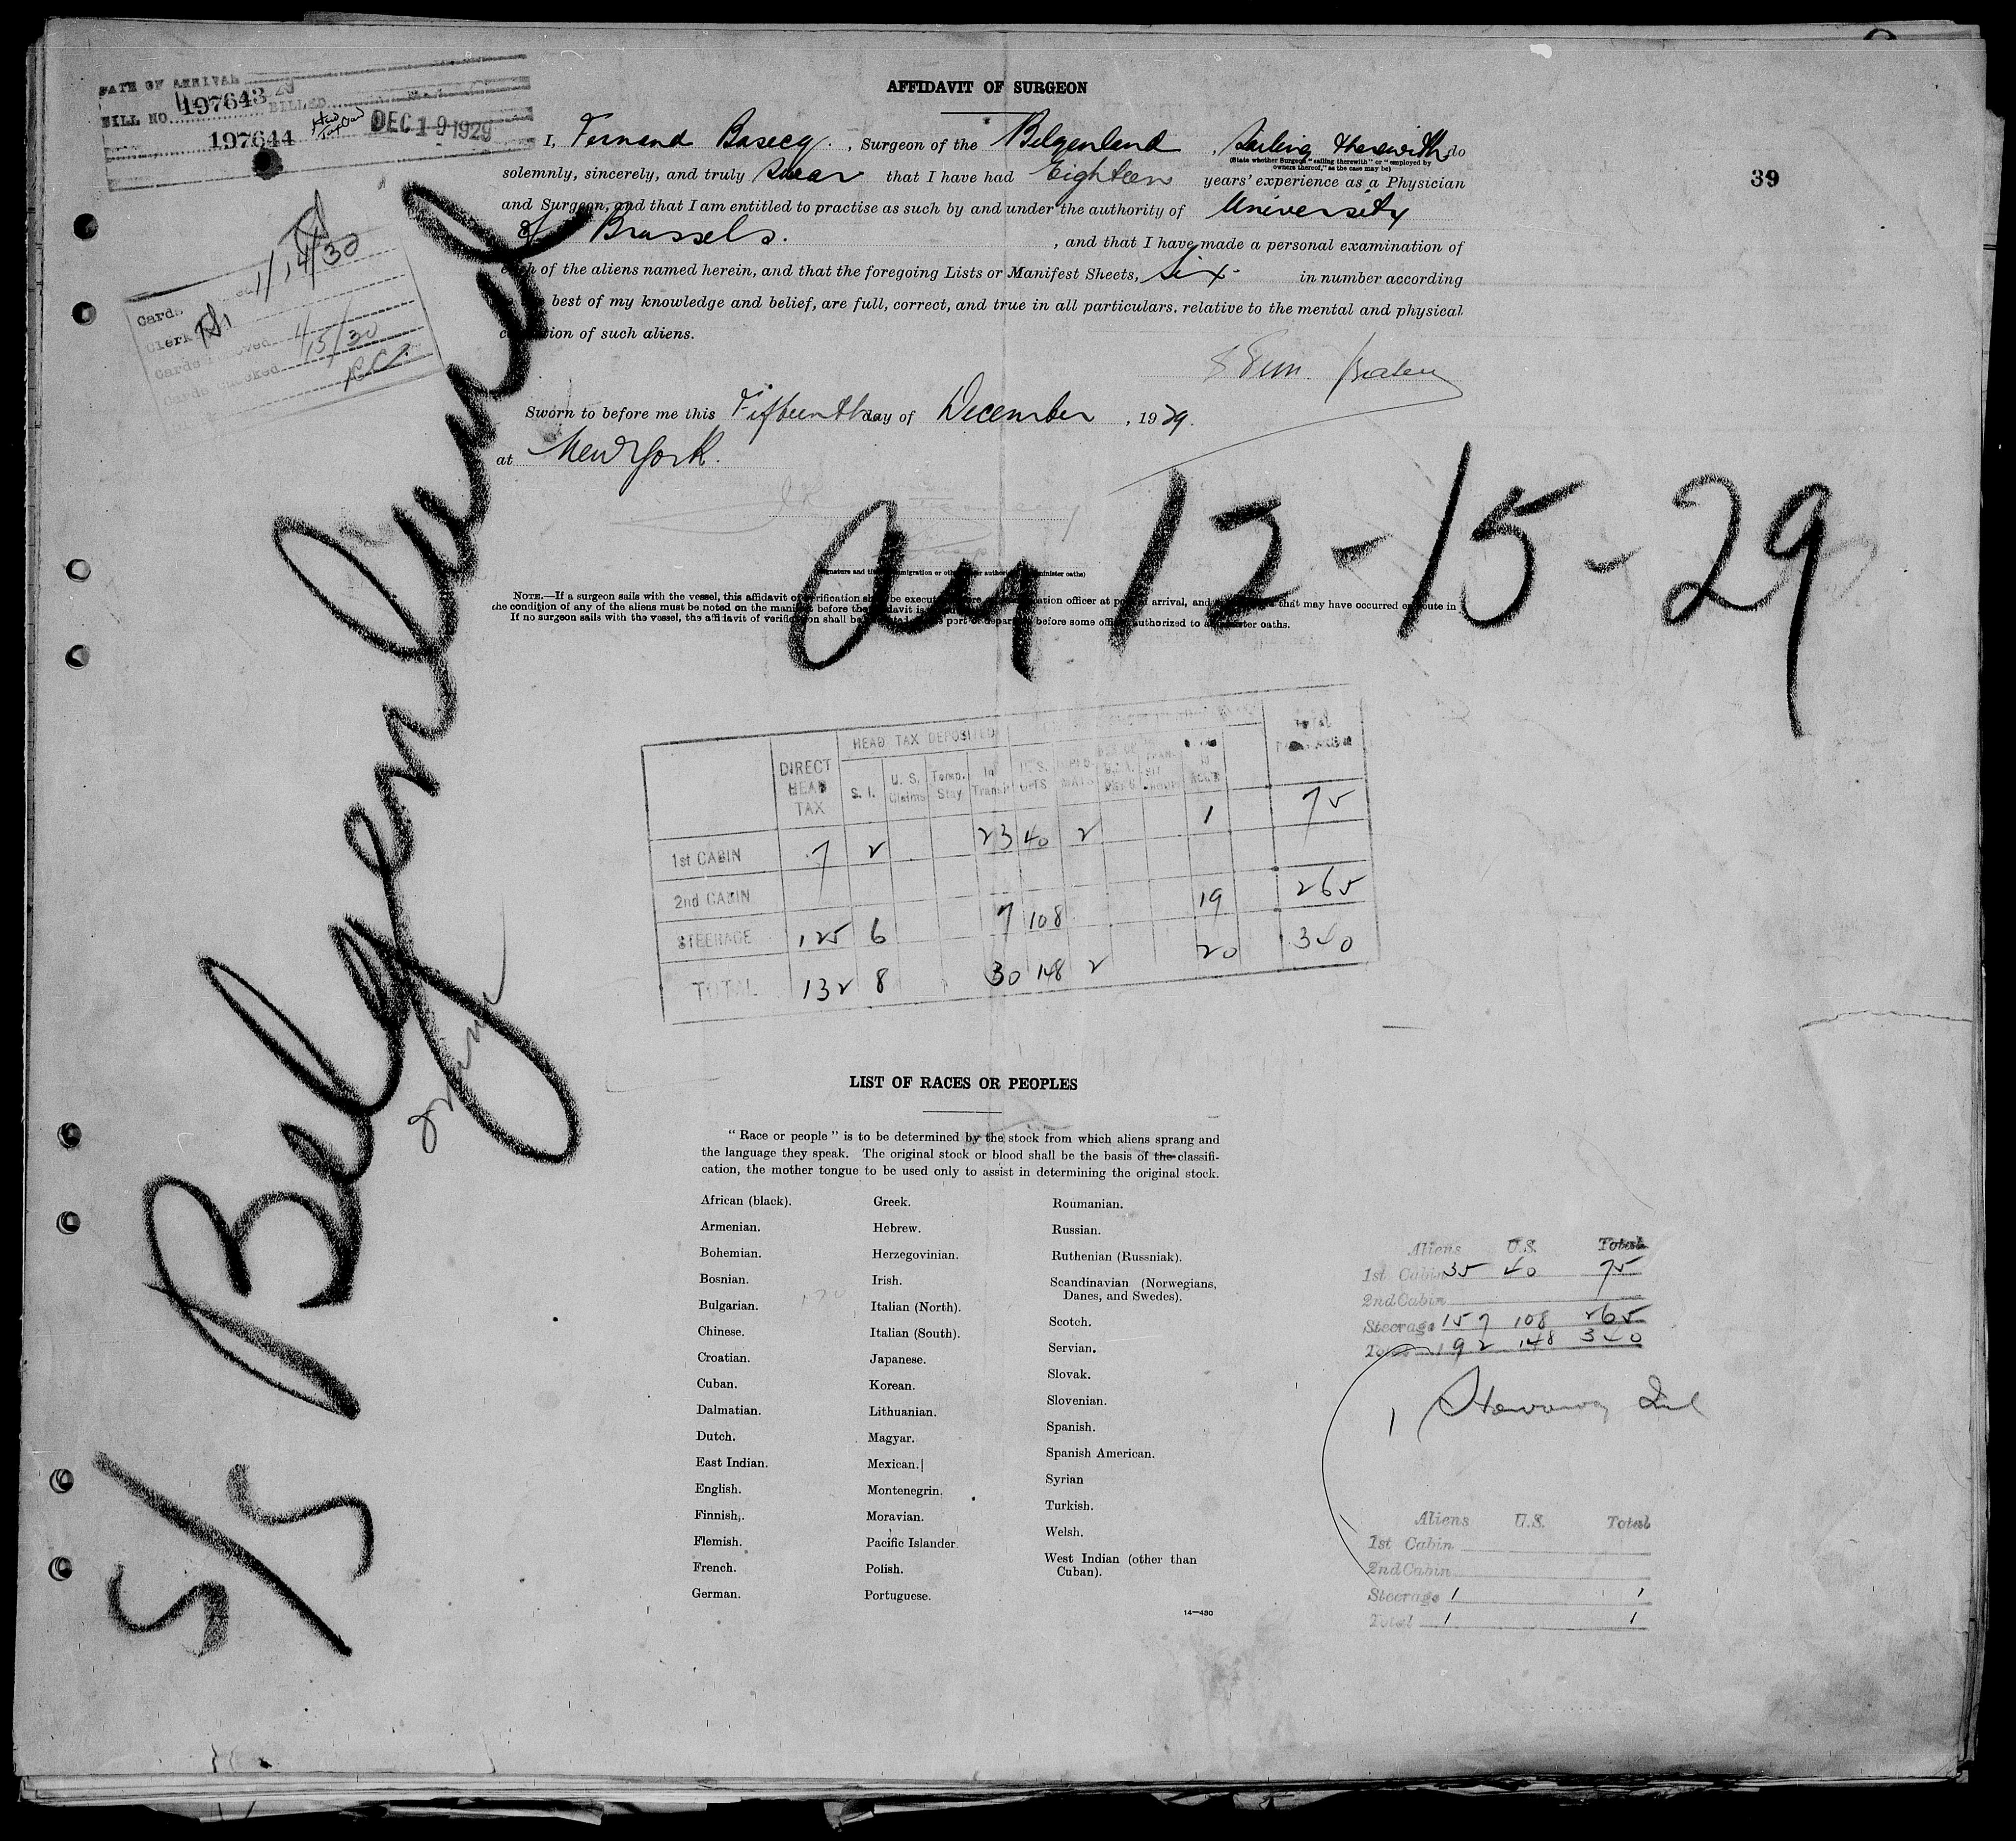 DATE OF ARRIVAL
BILL NO. 197643 BILLED
197644 DEC 19 1929
AFFIDAVIT OF SURGEON
39
I, Fernand Basecq, Surgeon of the Belgenland, Sailing therewith do
(State whether Surgeon "sailing therewith" or "employed by owners thereof," as the case may be)
solemnly, sincerely, and truly swear that I have had Eighteen years' experience as a Physician
and Surgeon, and that I am entitled to practise as such by and under the authority of University
of Brussels. , and that I have made a personal examination of
each of the aliens named herein, and that the foregoing Lists or Manifest Sheets, Six in number according
best of my knowledge and belief, are full, correct, and true in all particulars, relative to the mental and physical
condition of such aliens.
Cards 1/14/30
Clerk
Cards 4/15/30
Cards checked
Sworn to before me this Fifteenth day of December, 1929.
at New York.
S/S Belgenland
Arr 12-15-29
NOTE.—If a surgeon sails with the vessel, this affidavit of verification shall be executed before immigration officer at port of arrival, and that may have occurred en route in
the condition of any of the aliens must be noted on the manifest before the affidavit is
If no surgeon sails with the vessel, the affidavit of verification shall be executed port of departure before some officer authorized to administer oaths.
HEAD TAX DEPOSITED
DIRECT HEAD TAX S. I. U. S. Claims Temp. Stay In Transit
1st CABIN 7 2 23 40 2 1 75
2nd CABIN
STEERAGE 125 6 7 108 19 265
TOTAL 132 8 30 148 2 20 340
LIST OF RACES OR PEOPLES
"Race or people" is to be determined by the stock from which aliens sprang and
the language they speak. The original stock or blood shall be the basis of the classifi-
cation, the mother tongue to be used only to assist in determining the original stock.
African (black).
Armenian.
Bohemian.
Bosnian.
Bulgarian.
Chinese.
Croatian.
Cuban.
Dalmatian.
Dutch.
East Indian.
English.
Finnish.
Flemish.
French.
German.
Greek.
Hebrew.
Herzegovinian.
Irish.
Italian (North).
Italian (South).
Japanese.
Korean.
Lithuanian.
Magyar.
Mexican.
Montenegrin.
Moravian.
Pacific Islander.
Polish.
Portuguese.
Roumanian.
Russian.
Ruthenian (Russniak).
Scandinavian (Norwegians,
Danes, and Swedes).
Scotch.
Servian.
Slovak.
Slovenian.
Spanish.
Spanish American.
Syrian
Turkish.
Welsh.
West Indian (other than
Cuban).
14—430
Aliens U.S. Total
1st Cabin 35 40 75
2nd Cabin
Steerage 157 108 265
Total 192 148 340
1 Stowaway
Aliens U.S. Total
1st Cabin
2nd Cabin
Steerage 1 1
Total 1 1